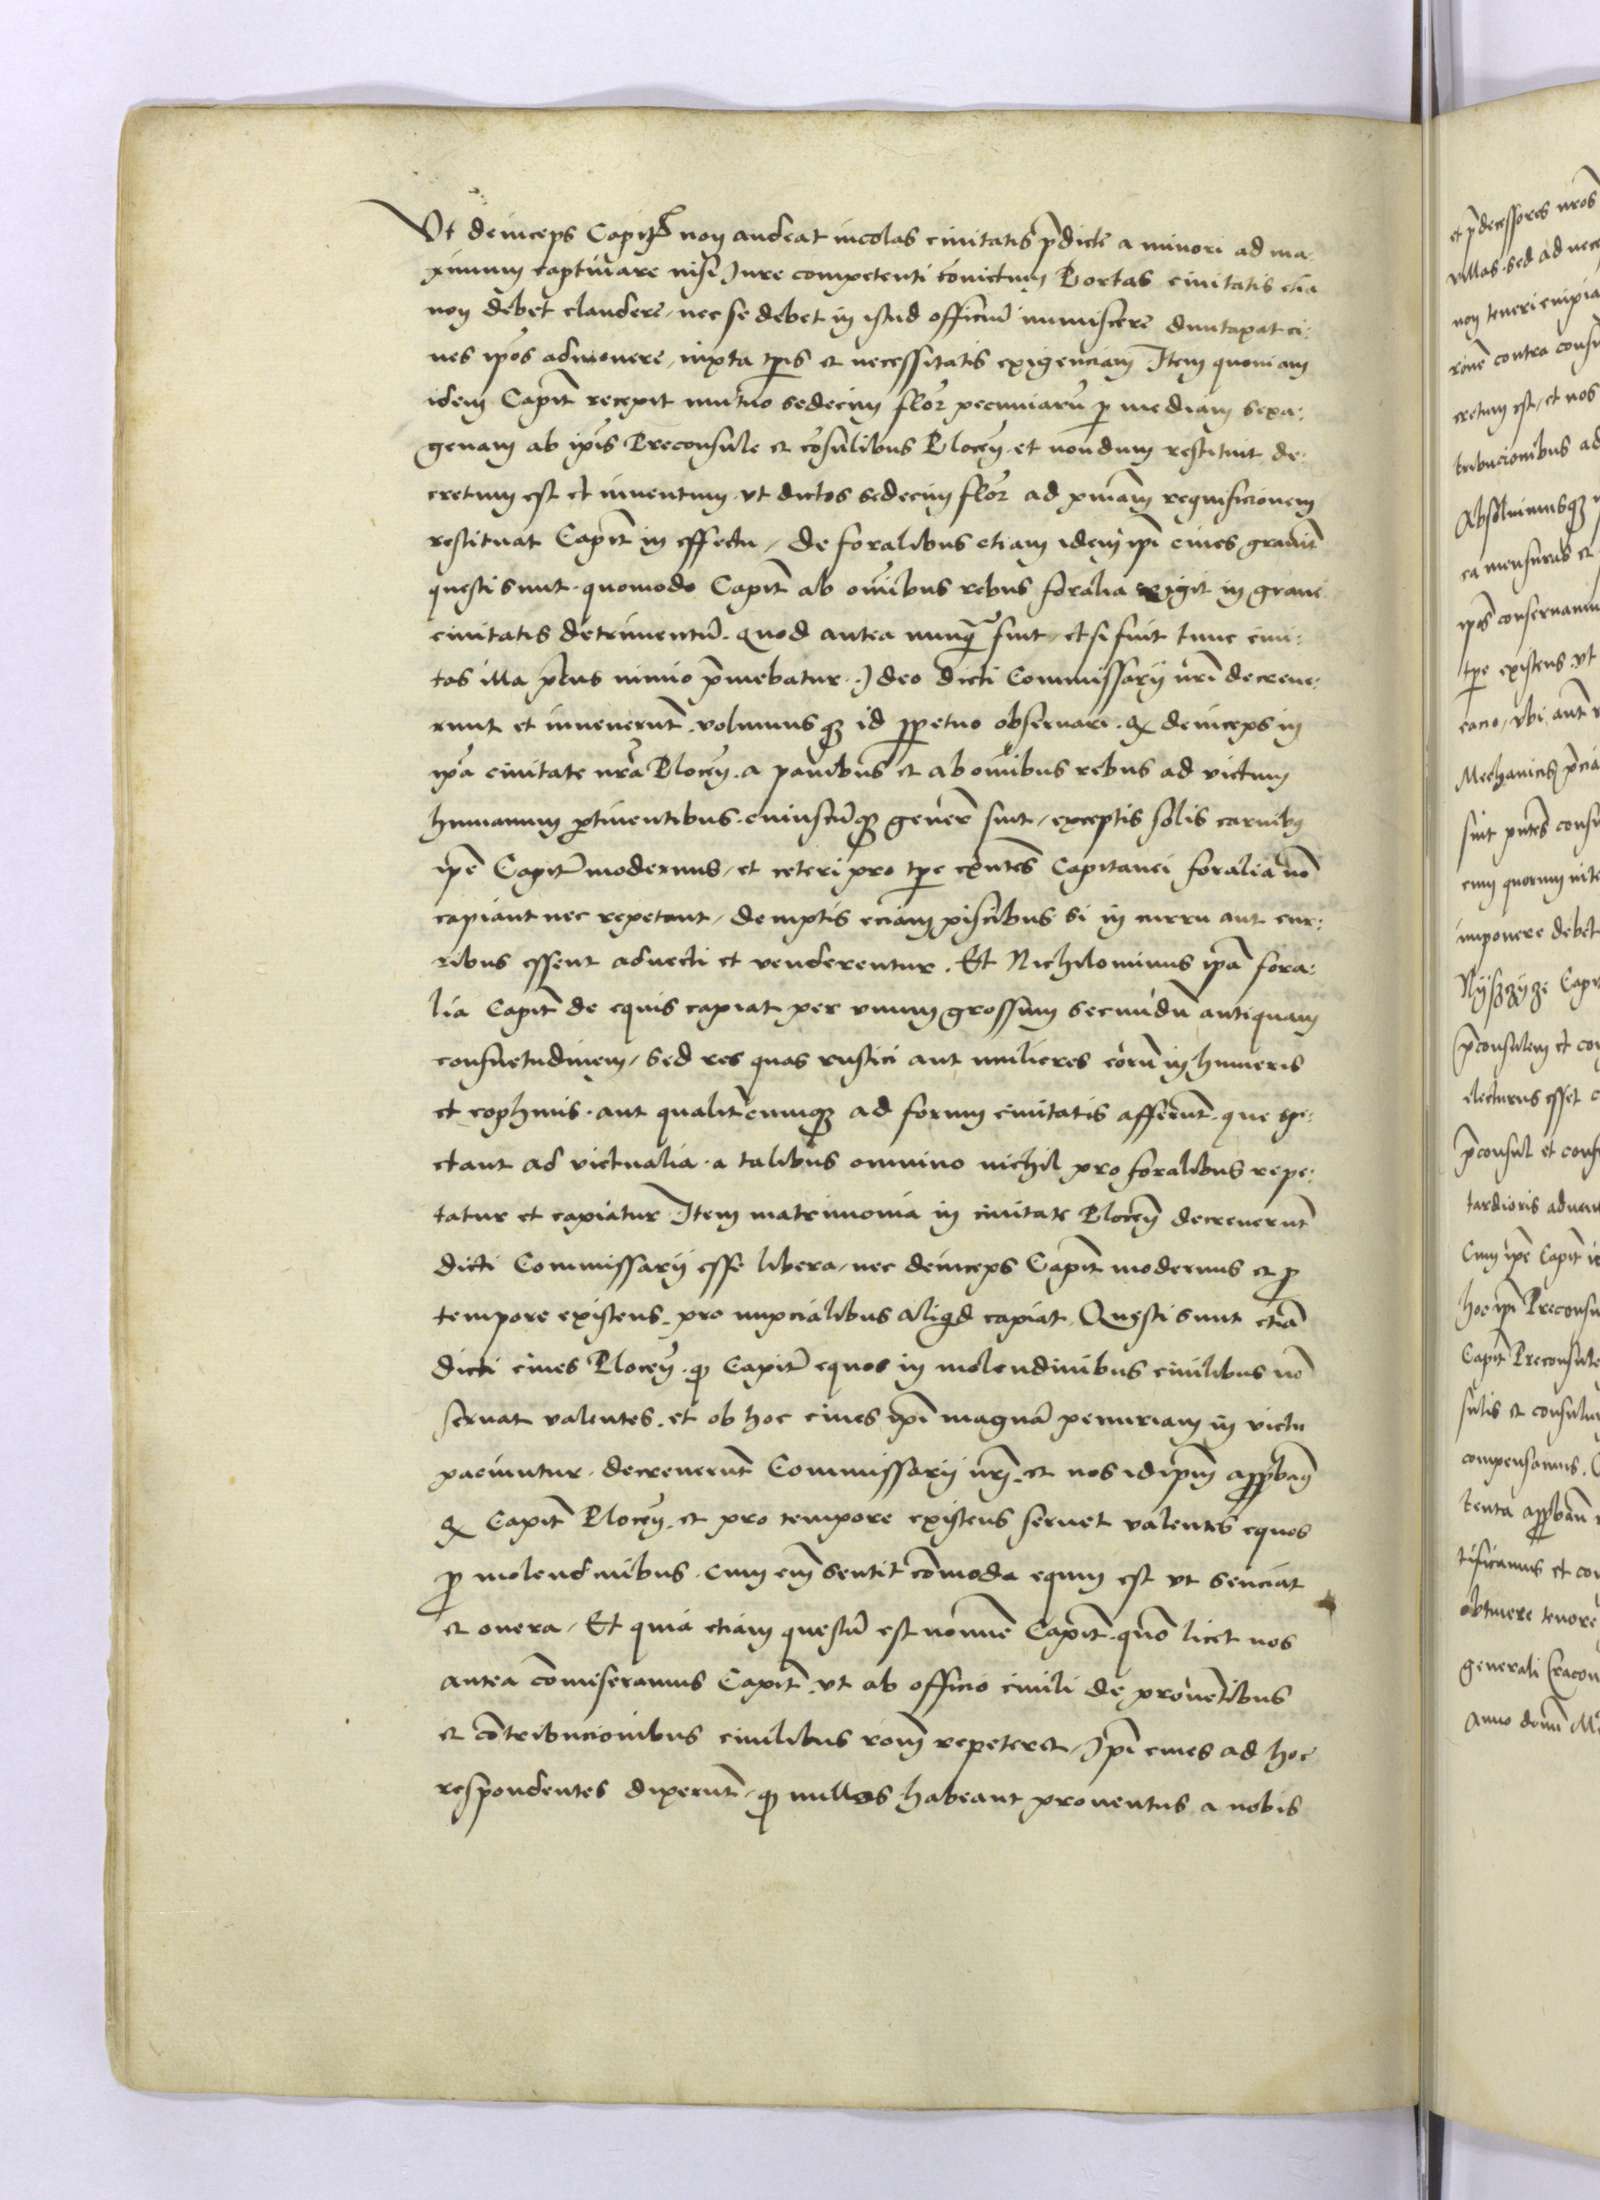 Vt deinceps Capit̃ non audeat incolas ciuitatis p̃dicte a minori ad ma:
ximum captiuare nisi Iure competenti cõuictum Portas ciuitatis etiã
non debet claudere, nec se debet in istud officiũ inmiscere duntaxat ci:
ues ip̃os admonere, iuxta tp̃is et necessitatis exigenciam Item quoniam
idem Capit̃ recepit mutuo sedecim flor̃ pecuniarũ p mediam sexa:
genam ab ip̃is Preconsule et cõsulibus Plocen̄ et nondum restituit, de:
cretum est et inuentum vt dictos sedecim flor̃ ad p̃mam requisicionem
restituat Capit̃ in effectu, De foralibus etiam idem ip̃i ciues grauit̃
questi sunt. quomodo Capit̃ ab om̃ibus rebus foralia exigit in graue
ciuitatis detrimentũ. Quod antea nunq̃ fuit, et si fuit tunc ciui:
tas illa p̃cius nimio p̃mebatur. Ideo dicti Commissarij nr̃i decreue:
runt et inuenerũt. volumusqꝫ id ꝑpetuo obseruari. Qꝫ deinceps in
ip̃a ciuitate nr̃a Plocen̄. a panibus et ab om̃ibus rebus ad victum
humanum ꝑtinentibus. cuiuscũqꝫ gener̃ sint, exceptis solis carnibꝫ
ip̃e Capit̃ modernus, et ceteri pro tp̃e exñtes Capitanei foralia nõ
capiant nec repetant, demptis eciam piscibus si in curru aut cur:
ribus essent aduecti et venderentur. Et Nichilominus ip̃a fora:
lia Capit̃ de equis capiat per vnum grossum secundũ antiquam
consuetudinem, Sed res quas rustici aut mulieres eorũ in humeris
et cophinis. aut qualit̃cumqꝫ ad forum ciuitatis afferũt. que spe:
ctant ad victualia. a talibus omnino nichil pro foralibus repe:
tatur et capiatur Item matrimonia in ciuitate Plocen̄ decreuerũt
dicti Commissarij esse libera, nec deinceps Capit̃ modernus et ꝓ
tempore existens, pro nupcialibus aliqd capiat. Questi sunt etiã
dicti ciues Plocen̄. ꝙ Capit̃ equos in molendinibus ciuilibus nõ
seruat valentes. et ob hoc ciues ip̃i magnã penuriam in victu
paciuntur. decreuerũt Commissarij nr̃i. et nos idip̃m apꝓbam̃
Qꝫ Capit̃ Plocen̄. et pro tempore existens seruet valentes equos
ꝓ molendinibus. cum em̃ sentit cõmoda equm est vt senciat
et onera, Et quia etiam questũ est noĩne Capit̃. quõ licet nos
antea cõmiseramus Capit̃. vt ab officio ciuili de prouẽtibus
et cõtribucionibus ciuilibus roñem repeteret, Ip̃i ciues ad hoc
respondentes dixerũt, ꝙ nullos habeant prouentus a nobis
et p̃decessores nr̃os
villas. sed ad nece
non teneri cuipia
cretum est, et nos
tribucionibus ad
Absoluimusqꝫ
ca mensuras et
ip̃os conseruam
tp̃e existens vt
Mechanicis
imponere debet
Capi
p̃consulem et con
electurus esset
p̃consul et cons
tardioris aduen
Cum ip̃e Capit̃
hoc ip̃i Preconsu
Capit̃ Preconsule
sulis et consulu
compensamus.
obtinere tenore
generali
Anno domĩ M